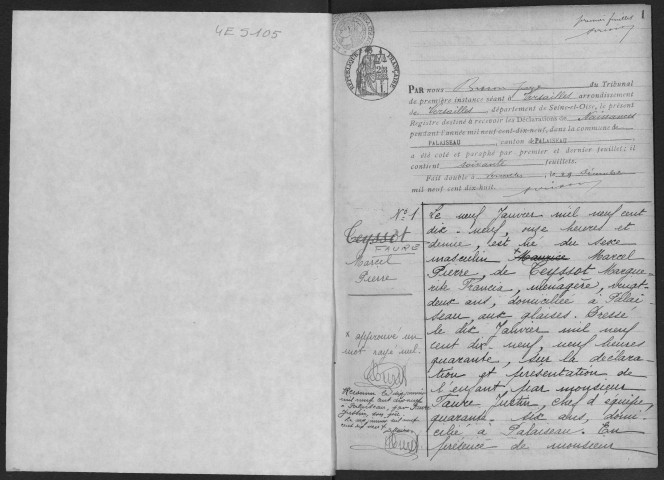 4E 5105
premier feuillet
1
RÉPUBLIQUE FRANÇAISE
PAR NOUS juge du Tribunal
de première instance séant à Versailles arrondissement
de Versailles, département de Seine-et-Oise, le présent
Registre destiné à recevoir les Déclarations de Naissances
pendant l'année mil neuf-cent-dix-neuf, dans la commune de
PALAISEAU, canton de PALAISEAU
a été coté et paraphé par premier et dernier feuillet; il
contient soixante feuillets.
Fait double à Versailles, le 29 décembre
mil neuf cent dix-huit.
N° 1
Teyssot
FAURE
Marcel
Pierre
Le neuf Janvier mil neuf cent
dix-neuf, onze heures et
demie, est né du sexe
masculin Maurice Marcel
Pierre, de Teyssot Margue-
rite Francia, ménagère, vingt
deux ans, domiciliée à Palai-
seau, aux glaises. Dressé
le dix Janvier mil neuf
cent dix-neuf, neuf heures
quarante, sur la déclara-
tion et présentation de
l'enfant, par monsieur
Faure Justin, chef d'équipe,
quarante-six ans, domi-
cilié à Palaiseau. En
présence de monsieur
x approuvé un
mot rayé nul.
Reconnu le dix janvier
mil neuf cent dix-neuf
à Palaiseau, par Faure
Justin, son père.